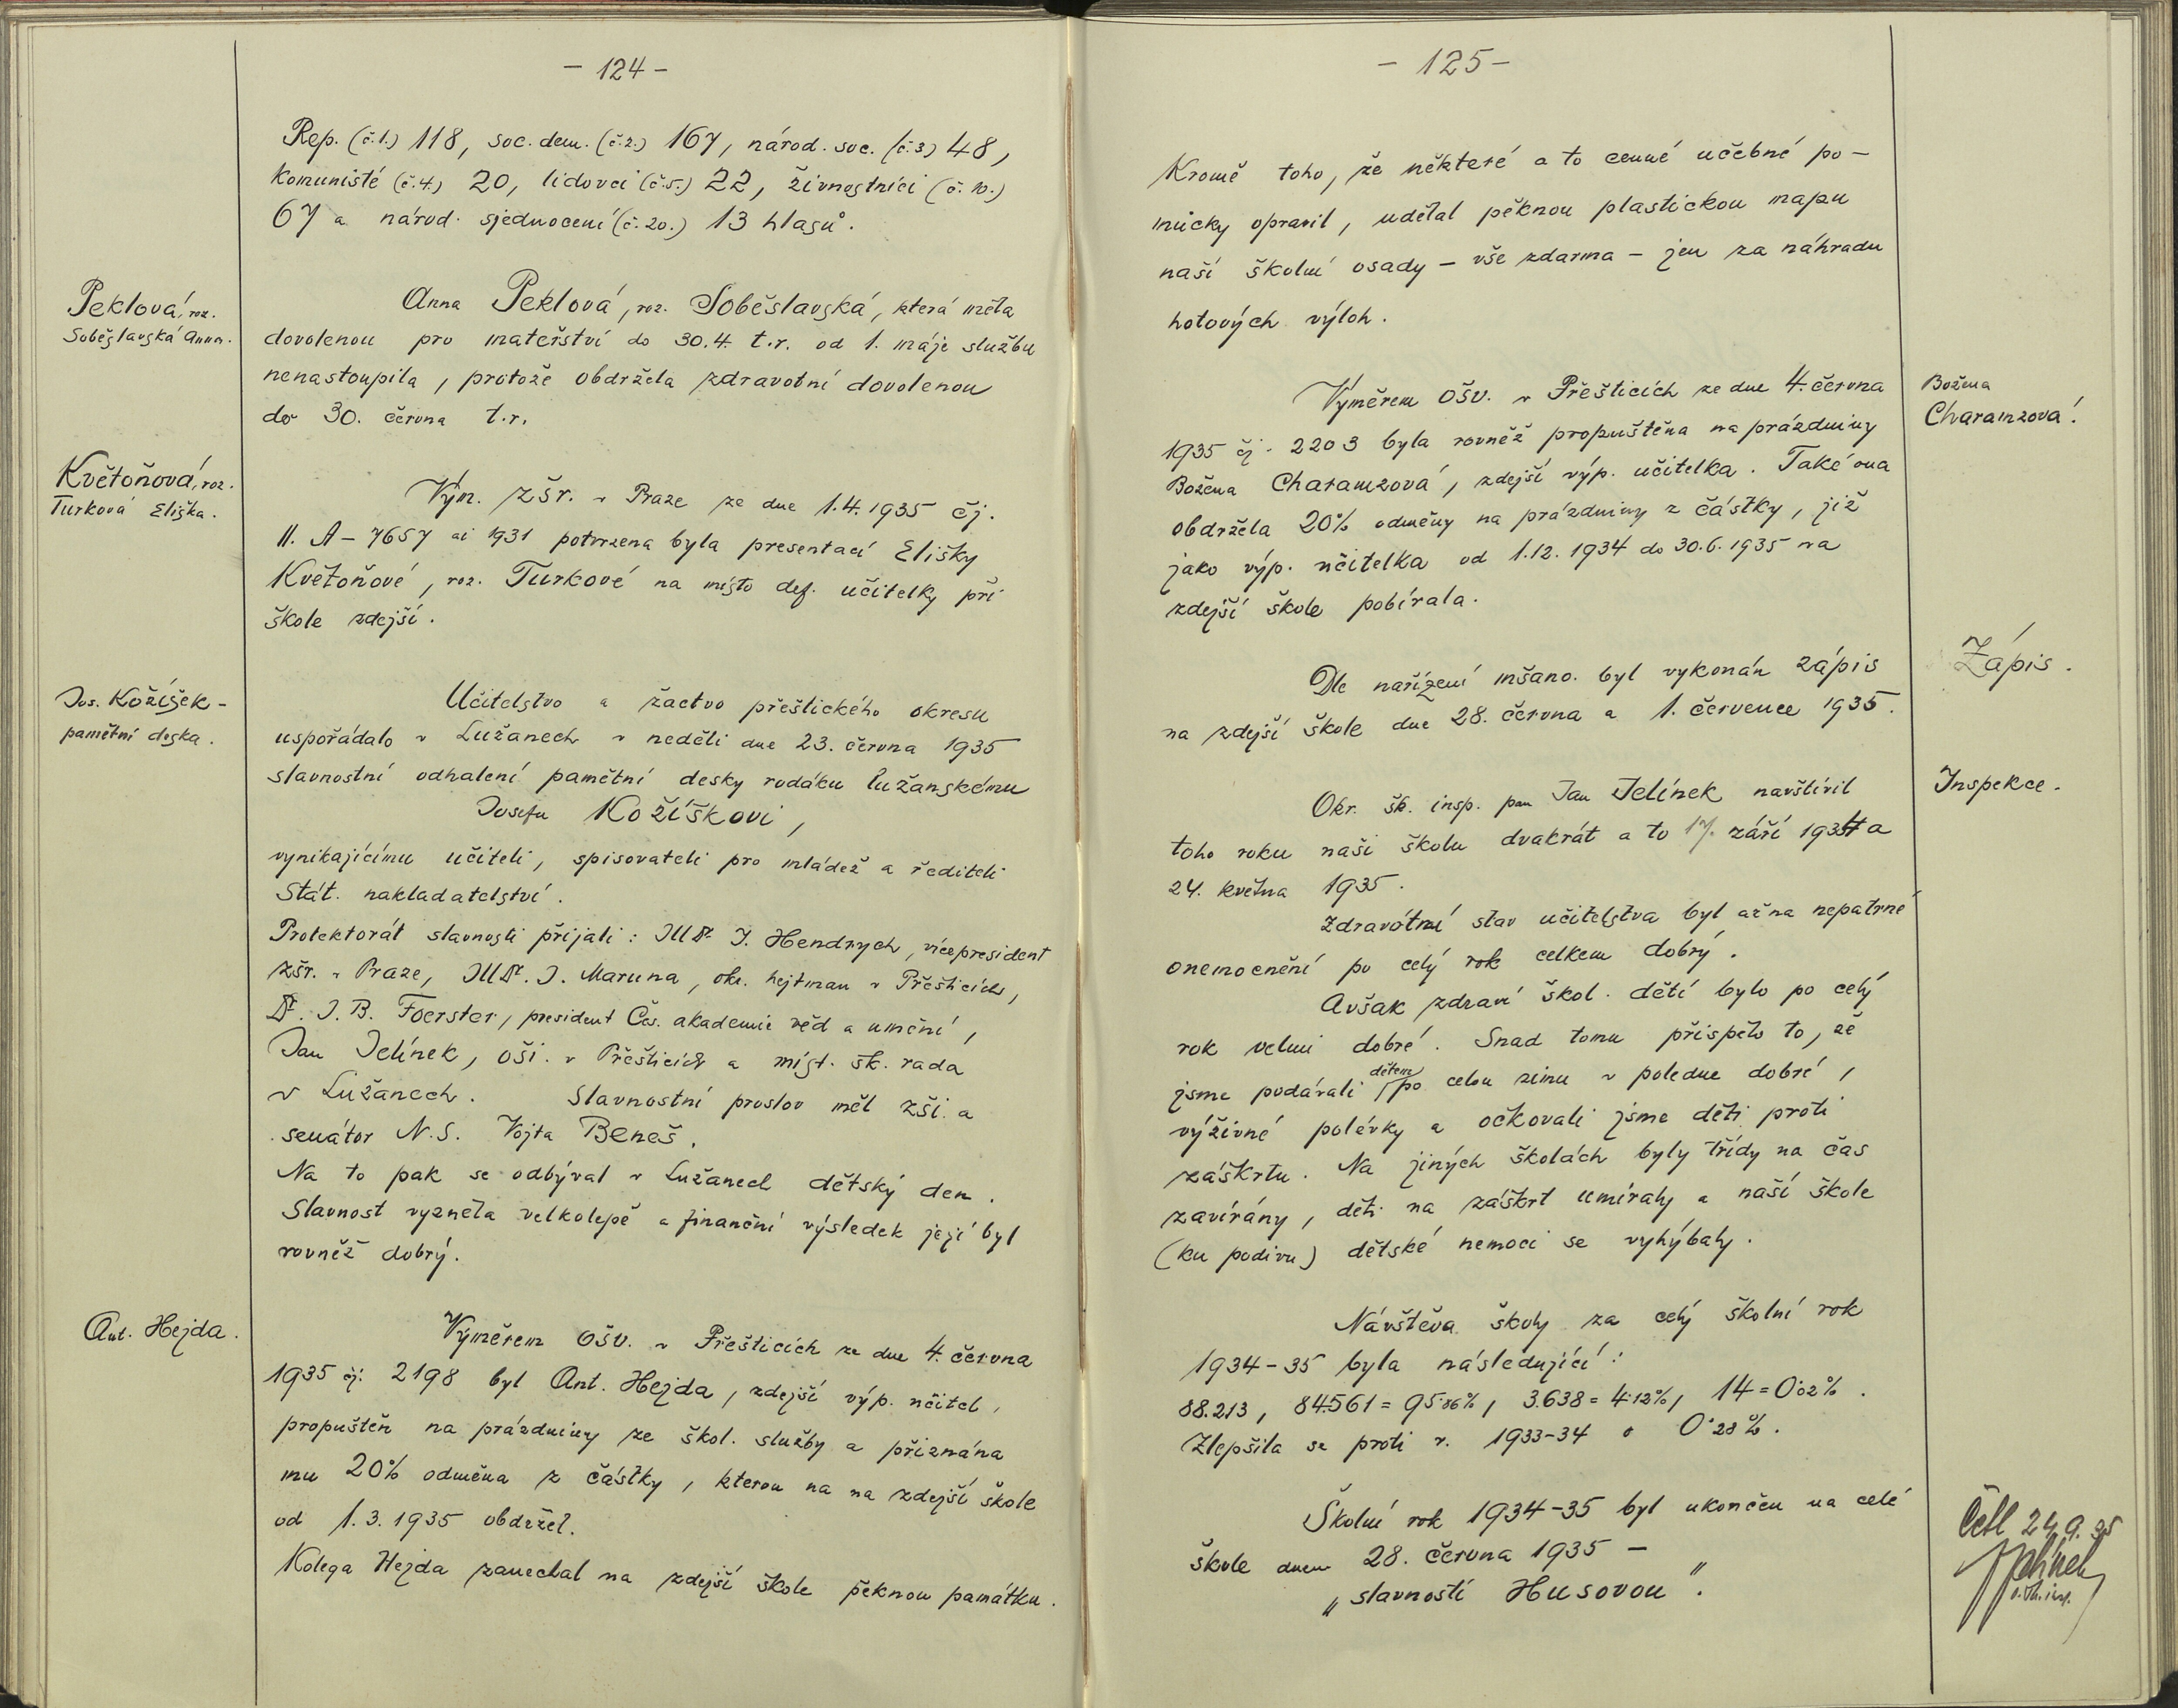 - 124 -
Rep. (č.1.) 118, soc. dem. (č.2.) 167, národ. soc. (č.3) 48,
Komunisté (č.4.) 20, lidovci (č.5.) 22, živnostníci (č.10.)
67 a národ. sjednocení (č.20.) 13 hlasů.
Peklová, roz.
Soběslavská Anna.
Anna Peklová, roz. Soběslavská, která měla
dovolenou pro mateřství do 30.4. t.r. od 1. máje službu
nenastoupila, protože obdržela zdravotní dovolenou
do 30. června t.r.
Květoňová, roz.
Turková Eliška.
Vým. zšr. v Praze ze dne 1.4.1935 čj.
II. A - 7657 ai 1931 potvrzena byla presentací Elišky
Květoňové, roz. Turkové na místo def. učitelky při
škole zdejší.
Jos. Kožíšek -
pamětní deska.
Učitelstvo a žactvo přeštického okresu
uspořádalo v Lužanech v neděli dne 23. června 1935
slavnostní odhalení pamětní desky rodáku lužanskému
Josefu Kožíškovi,
vynikajícímu učiteli, spisovateli pro mládež a řediteli
Stát. nakladatelství.
Protektorát slavnosti přijali: JUDr. J. Hendrych, vícepresident
zšr. v Praze, JUDr. J. Maruna, okr. hejtman v Přešticích,
Dr. J. B. Foerster, president Čes. akademie věd a umění,
Jan Jelínek, oši. v Přešticích a míst. šk. rada
v Lužanech. Slavnostní proslov měl zši. a
senátor N.S. Vojta Beneš.
Na to pak se odbýval v Lužanech dětský den.
Slavnost vyzněla velkolepě a finanční výsledek její byl
rovněž dobrý.
Ant. Hejda.
Výměrem OŠV. v Přešticích ze dne 4. června
1935 čj. 2198 byl Ant. Hejda, zdejší výp. učitel,
propuštěn na prázdniny ze škol. služby a přiznána
mu 20% odměna z částky, kterou na na zdejší škole
od 1.3.1935 obdržel.
Kolega Hejda zanechal na zdejší škole pěknou památku.
- 125 -
Kromě toho, že některé a to cenné učebné po-
můcky opravil, udělal pěknou plastickou mapu
naší školní osady - vše zdarma - jen za náhradu
hotových výloh.
Božena
Charamzová.
Výměrem OŠV. v Přešticích ze dne 4. června
1935 čj. 2203 byla rovněž propuštěna na prázdniny
Božena Charamzová, zdejší výp. učitelka. Také ona
obdržela 20% odměny na prázdniny z částky, již
jako výp. učitelka od 1.12.1934 do 30.6.1935 na
zdejší škole pobírala.
Zápis.
Dle nařízení mšano. byl vykonán zápis
na zdejší škole dne 28. června a 1. července 1935.
Inspekce.
Okr. šk. insp. pan Jan Jelínek navštívil
toho roku naši školu dvakrát a to 17. září 1934 a
24. května 1935.
Zdravotní stav učitelstva byl až na nepatrné
onemocnění po celý rok celkem dobrý.
Avšak zdraví škol. dětí bylo po celý
rok velmi dobré. Snad tomu přispělo to, že
jsme podávali dětem po celou zimu v poledne dobré,
výživné polévky a očkovali jsme děti proti
záškrtu. Na jiných školách byly třídy na čas
zavírány, děti na záškrt umíraly a naší škole
(ku podivu) dětské nemoci se vyhýbaly.
Návštěva školy za celý školní rok
1934-35 byla následující:
88.213, 84.561 = 95·86%, 3.638 = 4·12%, 14 = 0·02%.
Zlepšila se proti r. 1933-34 o 0·28%.
Školní rok 1934-35 byl ukončen na celé
škole dnem 28. června 1935 -
„slavností Husovou".
Četl 24.9.35
Jelínek
o. šk. insp.